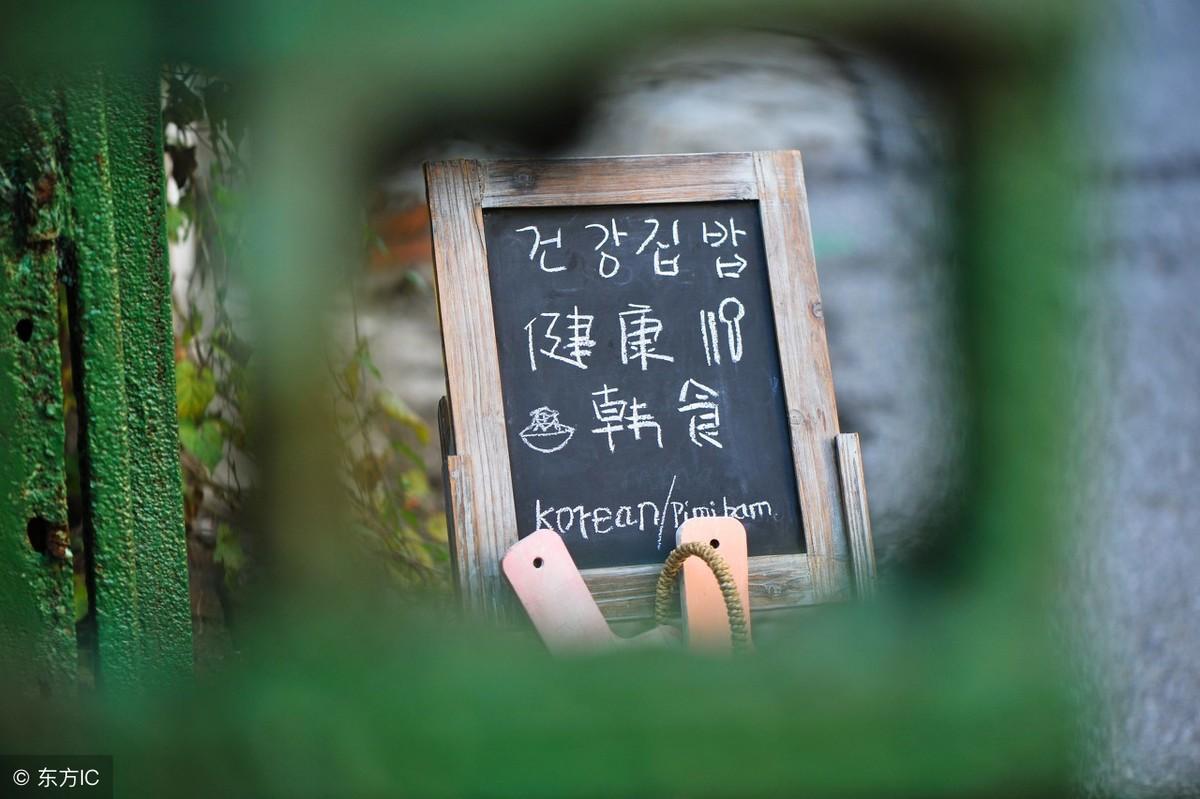 건강집밥
健康
韩食
korean/Pimibam
© 东方IC